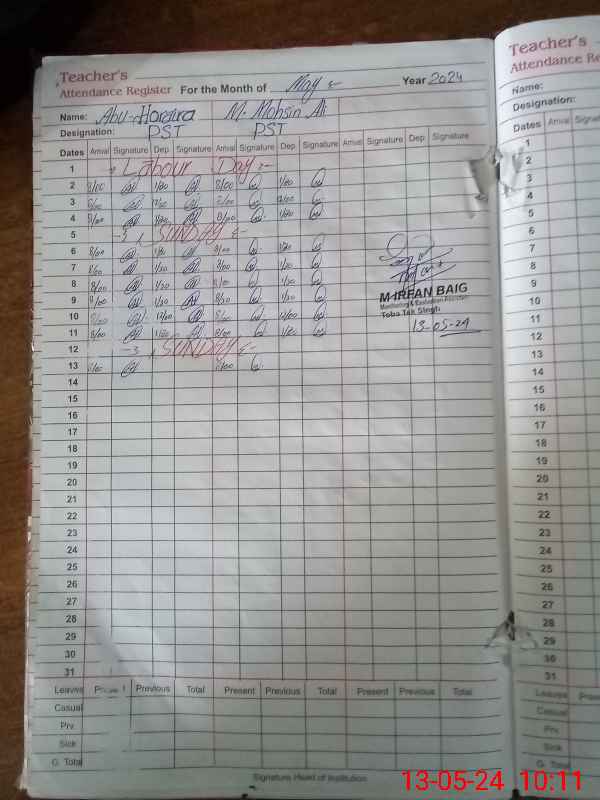 Teacher's
Attendance Register For the Month of May Year 2024
Name: Abu-Horaira M. Mohsin Ali
Designation: PST PST
Dates Arrival Signature Dep Signature Arrival Signature Dep Signature Arrival Signature Dep Signature
1 Labour Day
2 8/00 1/30 8/00 1/30
3 8/00 12/00 8/00 12/00
4 8/00 1/30 8/00 1/30
5 SUNDAY
6 8/00 1/30 8/00 1/30
7 8/00 1/30 8/00 1/30
8 8/00 1/30 8/00 1/30
9 8/00 1/30 8/00 1/30
10 8/00 12/00 8/00 12/00
11 8/00 1/30 8/00 1/30
12 SUNDAY
13 8/00 8/00
14
15
16
17
18
19
20
21
22
23
24
25
26
27
28
29
30
31
M-IRFAN BAIG
Monitoring & Evaluation Assistant
Toba Tek Singh
13-05-24
Leaves Present Previous Total Present Previous Total Present Previous Total
Casual
Prv.
Sick
G. Total
Signature Head of Institution
Teacher's
Attendance Re
Name:
Designation:
Dates Arrival Signat
1
2
3
4
5
6
7
8
9
10
11
12
13
14
15
16
17
18
19
20
21
22
23
24
25
26
27
28
29
30
31
Leaves Prese
Casual
Prv.
Sick
G. Total
13-05-24 10:11